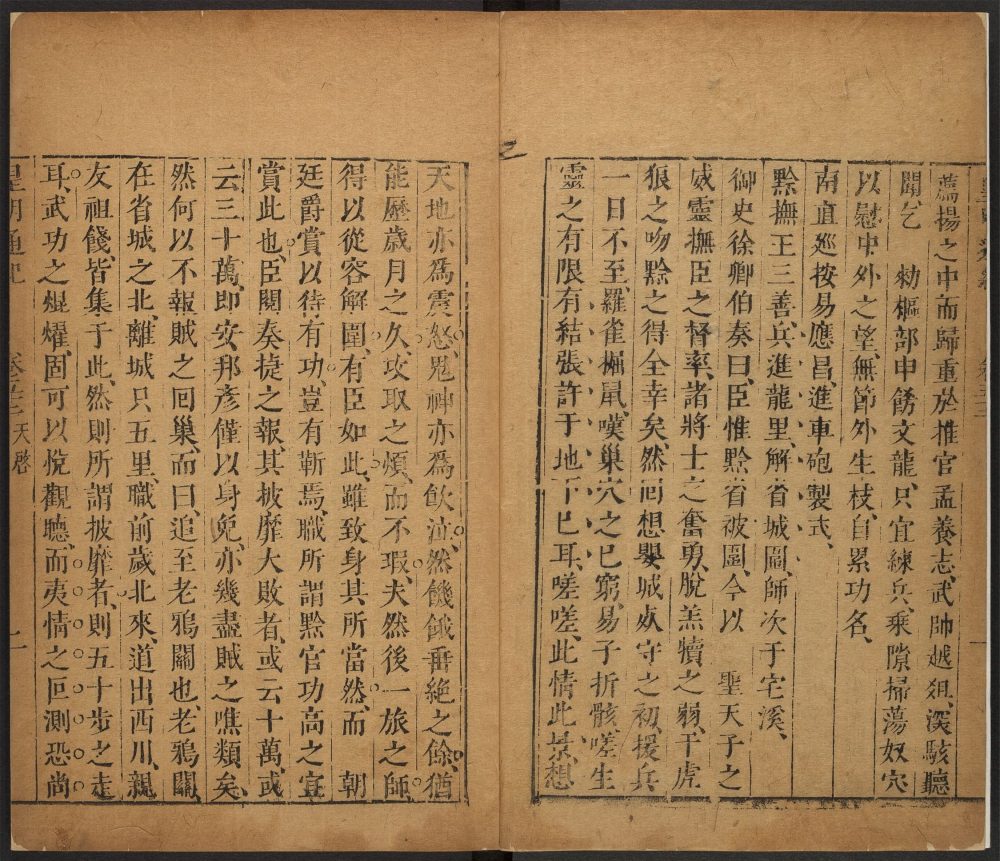 薦揚之中而歸重於推官孟養志武帥越俎深駭聽
聞乞　勅樞部申飭文龍只宜練兵乘隙掃蕩奴穴
以慰中外之望無節外生枝自累功名、
南直巡按易應昌、進車砲製式、
黔撫王三善兵、進龍里、解省城圍、師次于宅溪、
御史徐卿伯奏曰、臣惟黔省被圍、今以　聖天子之
威靈撫臣之督率、諸將士之奮勇、脫羔犢之弱、干虎
狼之吻、黔之得全幸矣、然回想嬰城央守之初、援兵
一日不至、羅雀掘鼠、嘆巢穴之已窮、易子折骸、嗟生
靈之有限、有結張許于地下已耳、嗟嗟、此情此景、想
天地亦爲震怒、鬼神亦爲飮泣、然饑餓垂絶之餘、猶
能歷歲月之久、攻取之煩、而不瑕、夫然後一旅之師、
得以從容解圍、有臣如此、雖致身其所當然、而　朝
廷爵賞以待有功、豈有靳焉、職所謂黔官功高之宜
賞此也、臣閱奏捷之報、其披靡大敗者、或云十萬、或
云三十萬、卽安邦彥僅以身免、亦幾盡賊之噍類矣、
然何以不報賊之回巢、而曰、追至老鴉關也、老鴉關、
在省城之北、離城只五里、職前歲北來、道出西川、親
友祖餞、皆集于此、然則所謂披靡者、則五十步之走
耳、武功之焜燿、固可以悅觀聽、而夷情之叵測恐尚
皇明通紀　卷五十二天啓　一